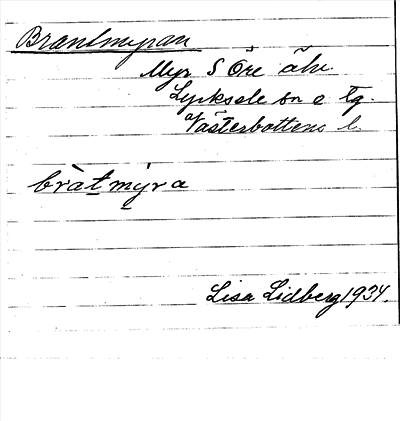 Brantmyran
Myr S Öre älv
Lycksele sn o tg.
Västerbottens l.
bràt mýra
Lisa Lidberg 1934.